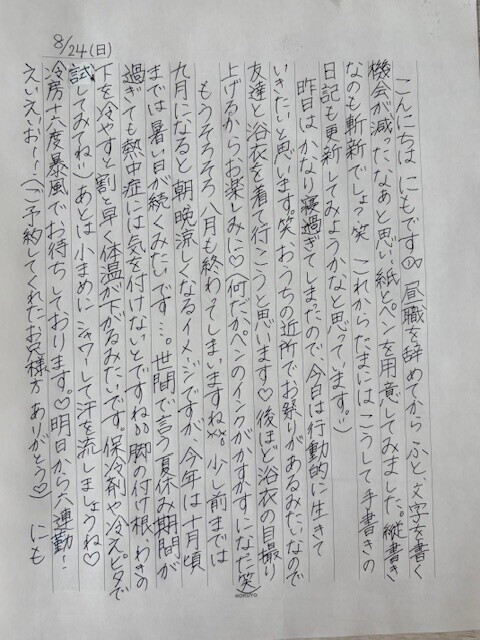 8/24(日)
こんにちは にもです♡ 昼職を辞めてから ふと、文字を書く
機会が減ったなぁと思い、紙とペンを用意してみました。縦書き
なのも斬新でしょ?笑 これからたまにはこうして手書きの
日記も更新してみようかなと思っています。:)
昨日はかなり寝過ぎてしまったので、今日は行動的に生きて
いきたいと思います。笑 おうちの近所でお祭りがあるみたいなので
友達と浴衣を着て行こうと思います♡ 後ほど浴衣の自撮り
上げるからお楽しみに♡(何だかペンのインクがかすかすになった笑)
もうそろそろ八月も終わってしまいますね 少し前までは
九月になると朝晩涼しくなるイメージですが、今年は十月頃
までは暑い日が続くみたいです…。世間で言う夏休み期間が
過ぎても熱中症には気を付けないとですね 脚の付け根、わきの
下を冷やすと割と早く体温が下がるみたいです。保冷剤や冷えピタで
試してみてね:) あとは小まめにシャワーして汗を流しましょうね♡
冷房十六度暴風でお待ちしております。♡ 明日から六連勤!
えいえいおー!(ご予約してくれたお兄様方 ありがとう♡) にも
KOKUYO